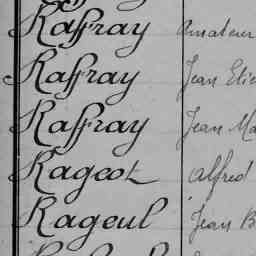 Raffray Amateur
Raffray Jean Elie
Raffray Jean Ma
Rageot Alfred
Rageul Jean B